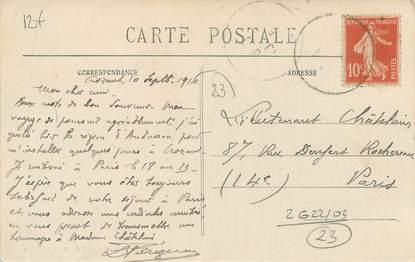 12f
CARTE POSTALE
CORRESPONDANCE
ADRESSE
REPUBLIQUE FRANÇAISE
10c
POSTES
Crozant, 10 Septbre 1916
23
Mon cher ami.
Deux mots de bon souvenir. Mon
voyage se poursuit agréablement. J'ai
quitté hier la région d'
m'installer quelques jours à Crozant.
Je rentrerai à Paris le 18 au 19.
J'espère que vous êtes toujours
satisfait de votre séjour à Paris
et vous adresse mes cordiales amitiés
en vous priant de transmettre mes
hommages à Madame Châtelain
Lieutenant Châtelain
87, Rue Denfert Rochereau
(14e)
Paris
2G22/03
23